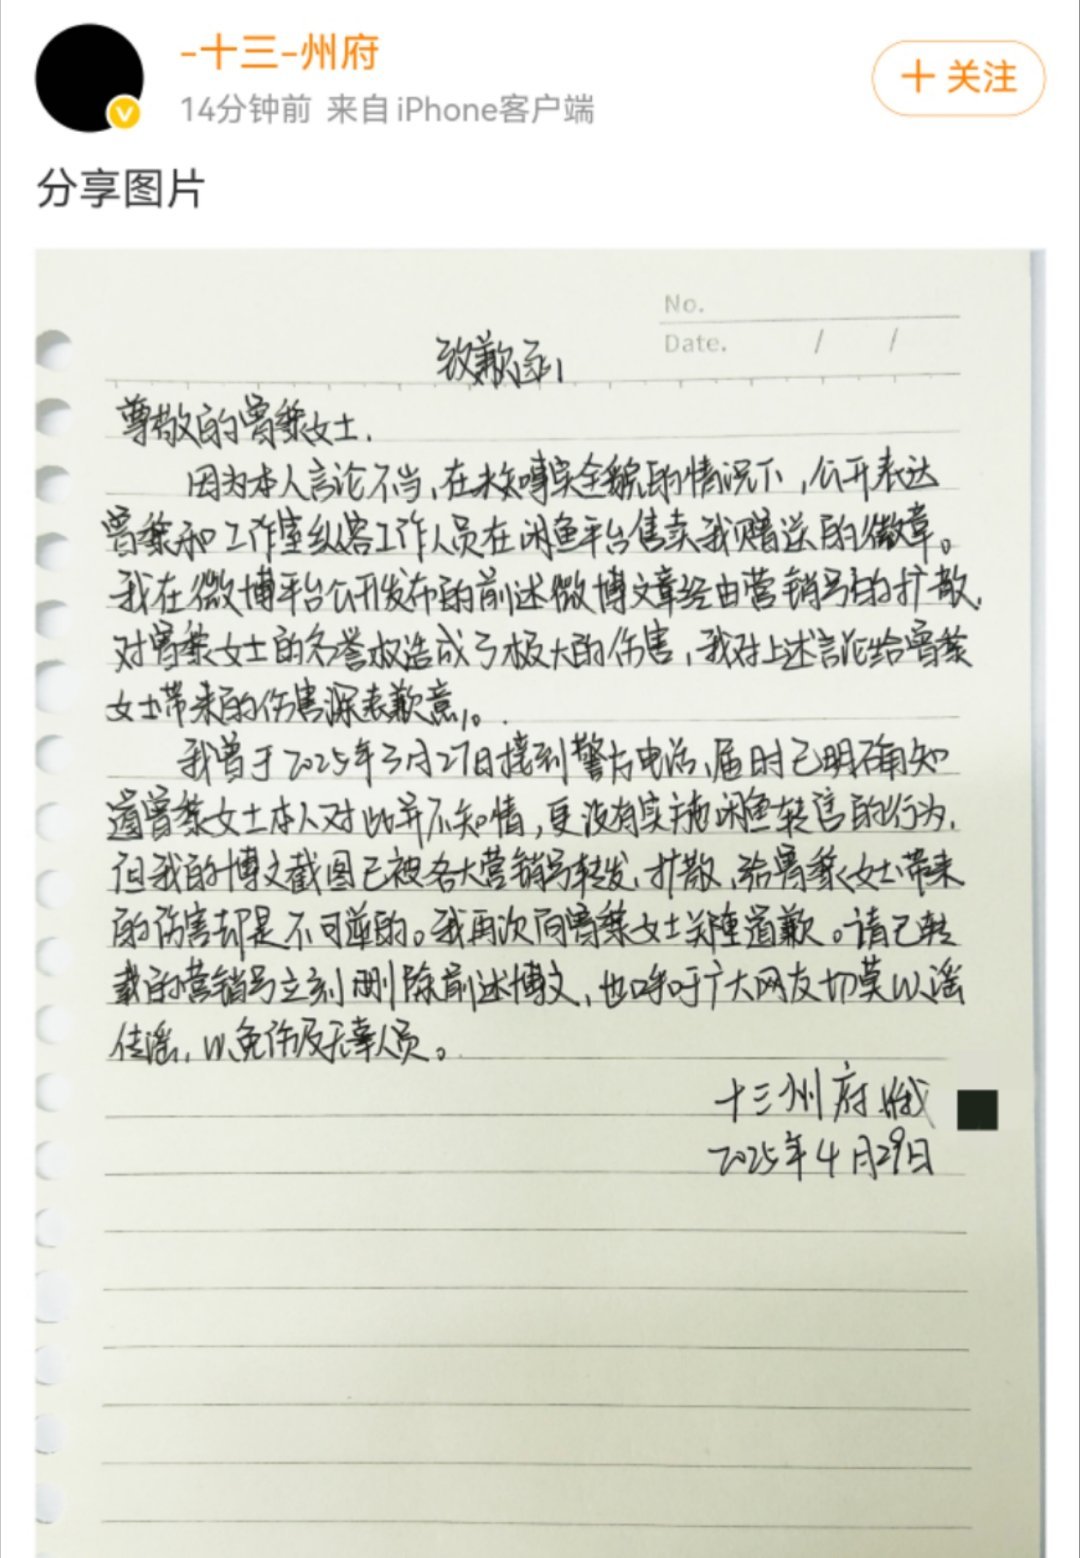 -十三-州府
14分钟前 来自 iPhone客户端
+ 关注
分享图片
No.
Date. / /
致歉函
尊敬的曾黎女士.
因为本人言论不当,在未知事实全貌的情况下,公开表达
曾黎和工作室纵容工作人员在闲鱼平台售卖我赠送的徽章。
我在微博平台公开发布的前述微博文章经由营销号的扩散,
对曾黎女士的名誉权造成了极大的伤害,我对上述言论给曾黎
女士带来的伤害深表歉意。
我曾于2025年3月27日接到警方电话,届时已明确知
道曾黎女士本人对此并不知情,更没有实施闲鱼转售的行为,
但我的博文截图已被各大营销号转发,扩散,给曾黎女士带来
的伤害却是不可逆的。我再次向曾黎女士郑重道歉。请已转
载的营销号立刻删除前述博文,也呼吁广大网友切莫以谣
传谣,以免伤及无辜人员。
十三州府
2025年4月29日